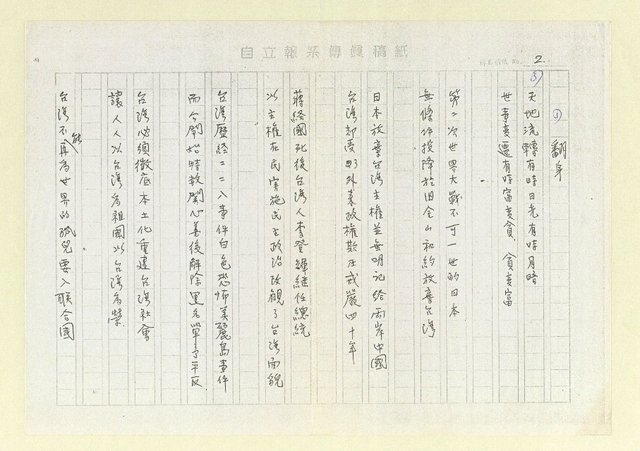 自立報系傳真稿紙
2.
①
翻身
③
天地流轉有時日光有時月暗
世事變遷有時富變貧 貧變富
第二次世界大戰不可一世的日本
無條件投降於旧金山和約放棄台灣
日本放棄台灣主權並無明記給兩岸中國
台灣却受外來政權欺压戒嚴四十年
蔣経國死後台灣人李登輝継任總統
以主權在民實施民主政治改観了台灣面貌
台灣歷経二二八事件白色恐怖美麗島事件
而今開始釋放関心善後解除黑名單予平反
台灣必須徹底本土化重建台灣社會
讓人人以台灣為祖國以台灣為榮
台灣不能再為世界的孤兒要入联合國